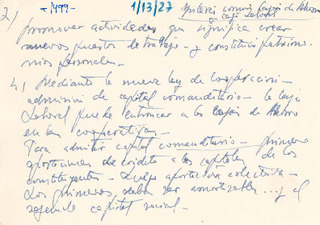 2) -1499- 1/13/27
promover actividades que significa crear
nuevos puestos de trabajo - y constituir patrimo-
nios personales -
4) Mediante la nueva ley de cooperación -
admisión de capital comanditario - la Caja
Laboral puede entroncar a las Cajas de Ahorro
en las cooperativas -
Para admitir capital comanditario - primero
aportaciones de crédito a los capitales de los
constituyentes - Luego aportación colectiva -
Los primeros, deben ser amortizables ... y el
segundo capital social -